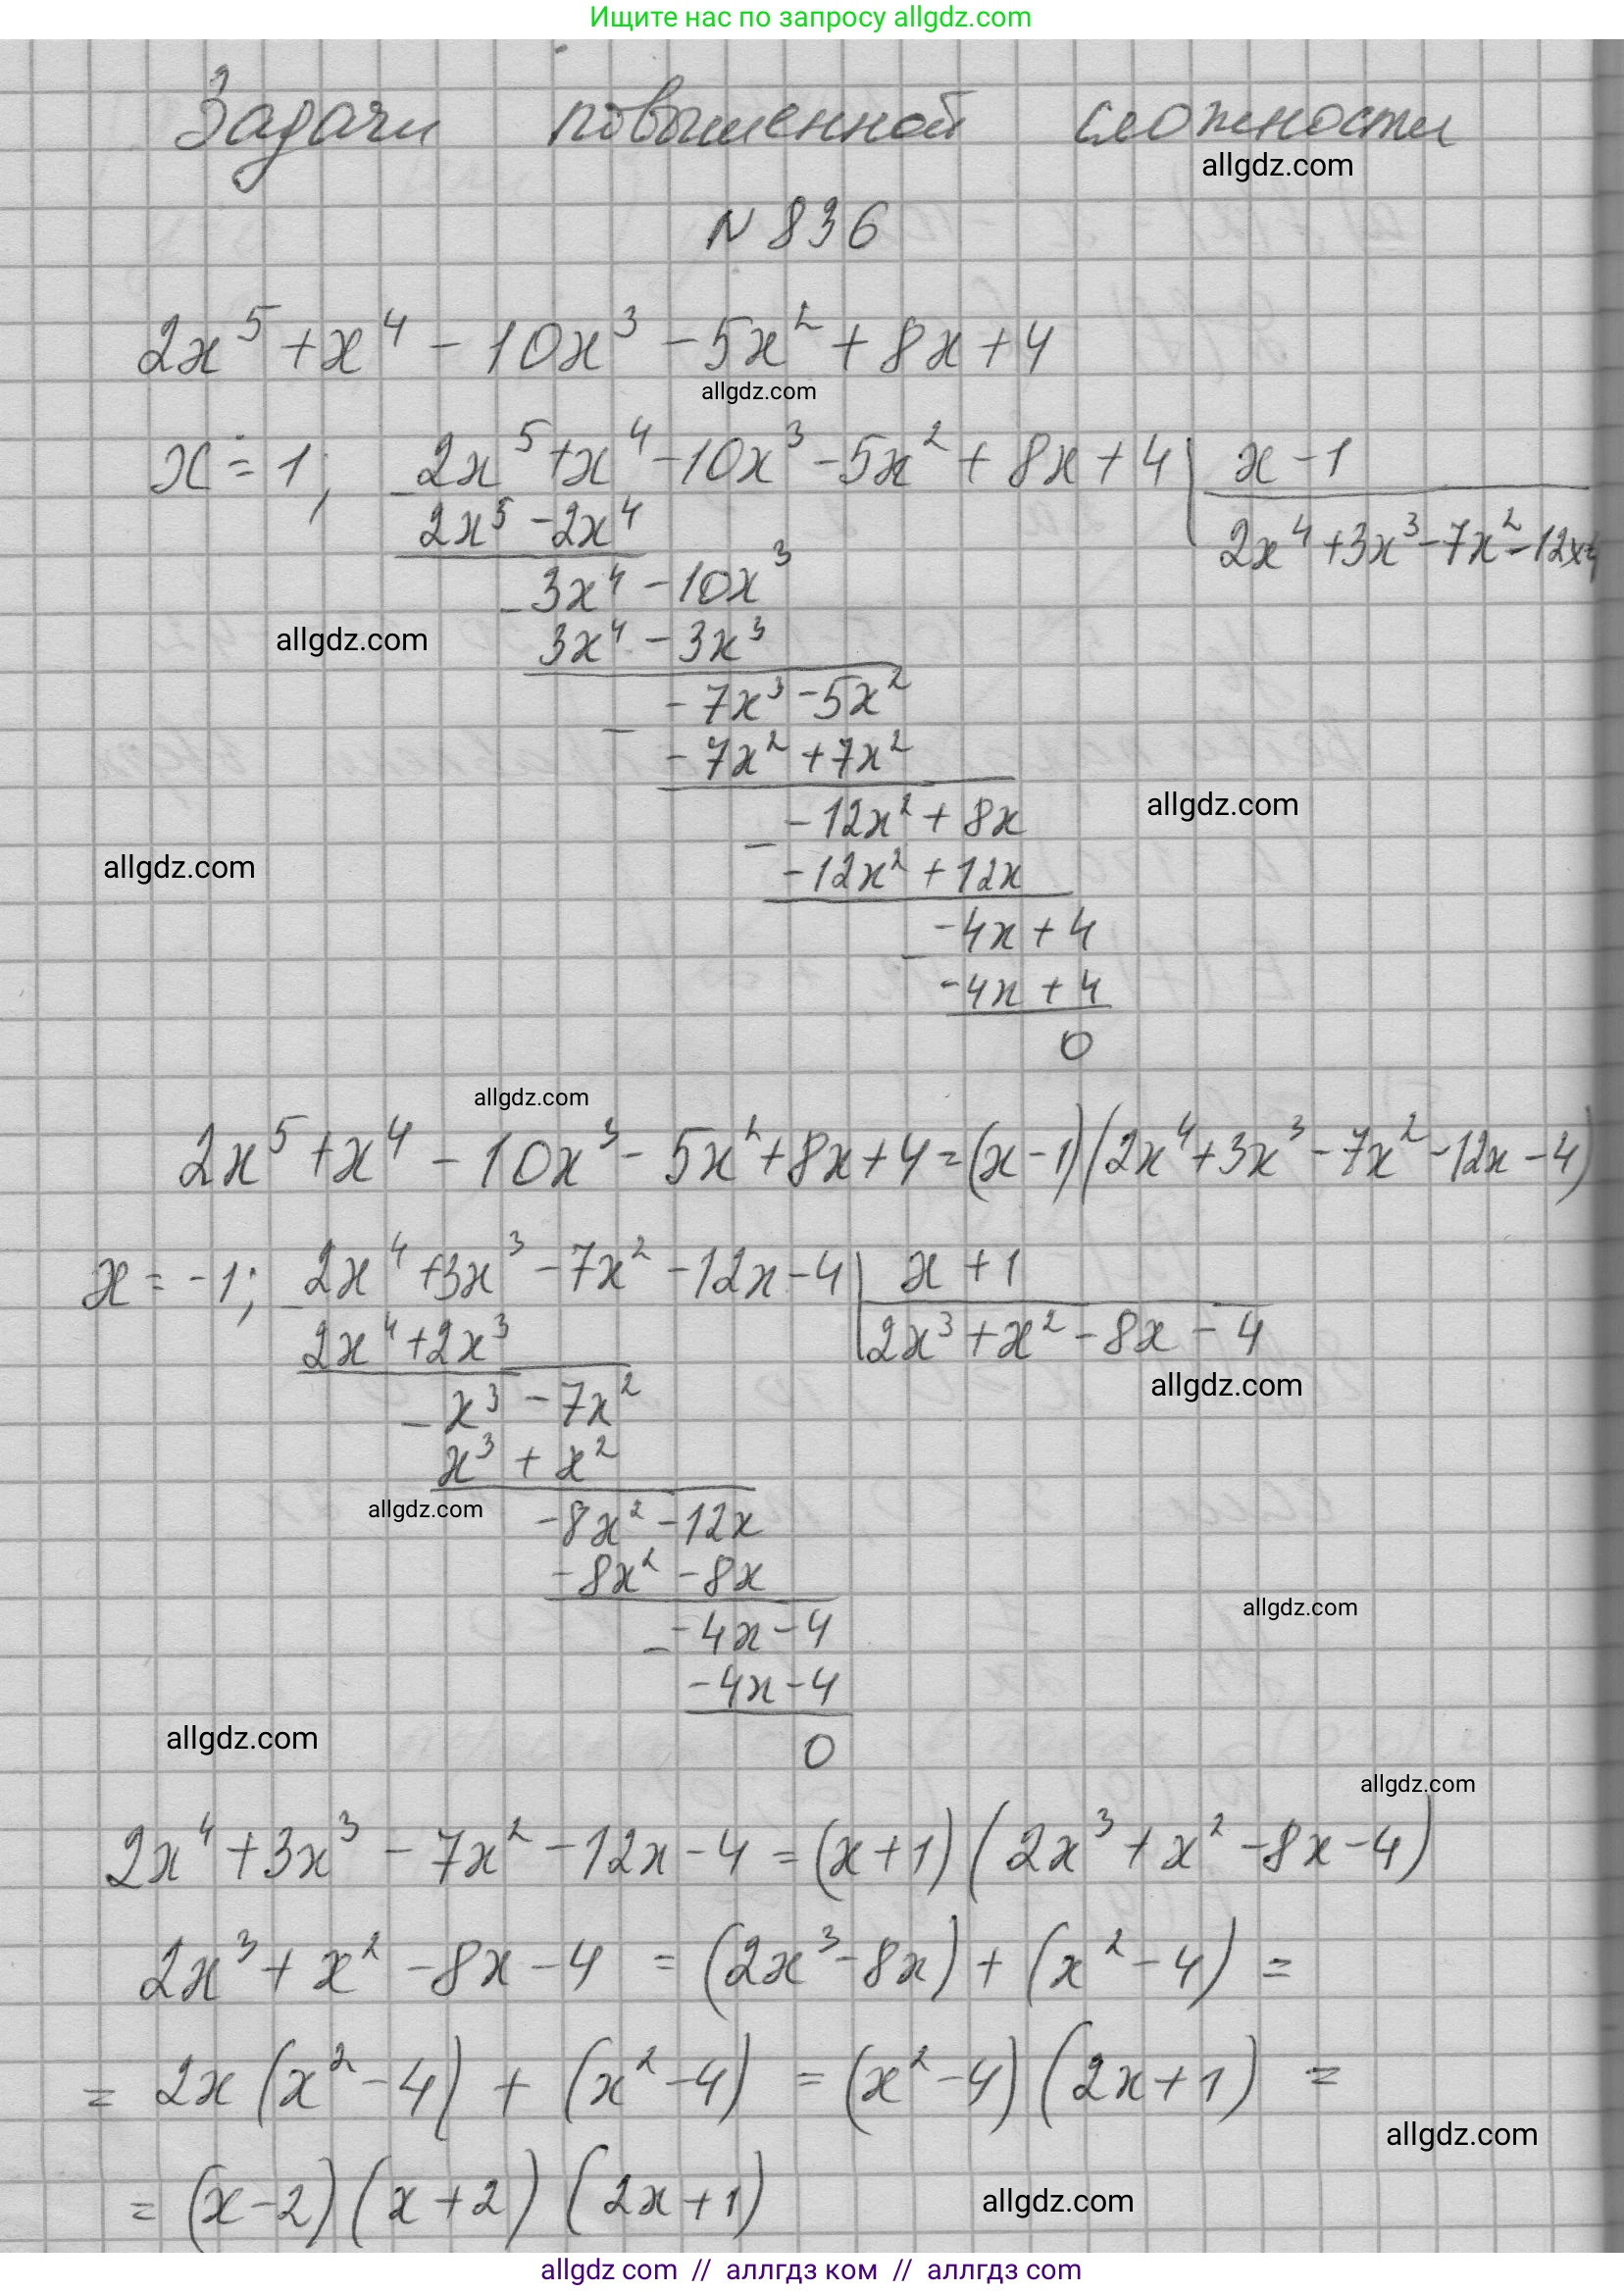 Ищите нас по запросу allgdz.com
Задачи повышенной сложности
allgdz.com
N 836
2x⁵ + x⁴ - 10x³ - 5x² + 8x + 4
allgdz.com
x = 1; - 2x⁵ + x⁴ - 10x³ - 5x² + 8x + 4 | x - 1
2x⁵ - 2x⁴ 2x⁴ + 3x³ - 7x² - 12x - 4
- 3x⁴ - 10x³
allgdz.com 3x⁴ - 3x³
- - 7x³ - 5x²
- 7x² + 7x²
- - 12x² + 8x allgdz.com
allgdz.com - 12x² + 12x
- - 4x + 4
- 4x + 4
0
allgdz.com
2x⁵ + x⁴ - 10x³ - 5x² + 8x + 4 = (x - 1)(2x⁴ + 3x³ - 7x² - 12x - 4)
x = -1; - 2x⁴ + 3x³ - 7x² - 12x - 4 | x + 1
2x⁴ + 2x³ 2x³ + x² - 8x - 4
allgdz.com
- x³ - 7x²
x³ + x²
allgdz.com - 8x² - 12x
- 8x² - 8x
allgdz.com
- - 4x - 4
- 4x - 4
allgdz.com 0
allgdz.com
2x⁴ + 3x³ - 7x² - 12x - 4 = (x + 1)(2x³ + x² - 8x - 4)
2x³ + x² - 8x - 4 = (2x³ - 8x) + (x² - 4) =
= 2x(x² - 4) + (x² - 4) = (x² - 4)(2x + 1) =
allgdz.com
= (x - 2)(x + 2)(2x + 1)
allgdz.com
allgdz com // аллгдз ком // аллгдз com